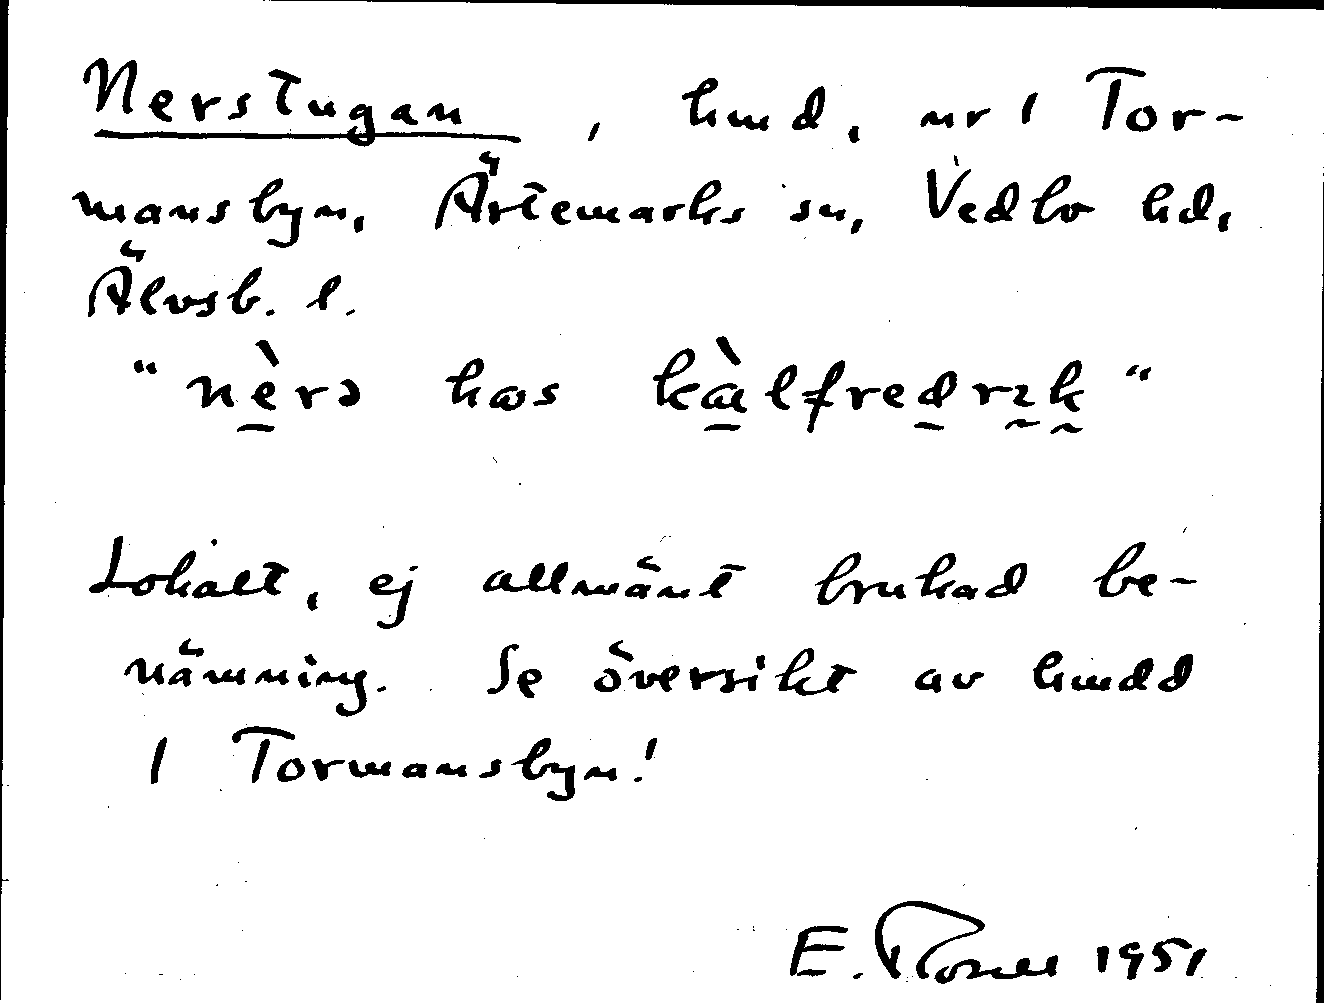 Nerstugan, hmd, nr 1 Tor-
mansbyn, Ärtemarks sn, Vedbo hd,
Älvsb. l.
"nèrə hos kàlfredrɪk"
Lokalt, ej allmänt brukad be-
nämning. Se översikt av hmdd
1 Tormansbyn!
E. 1951